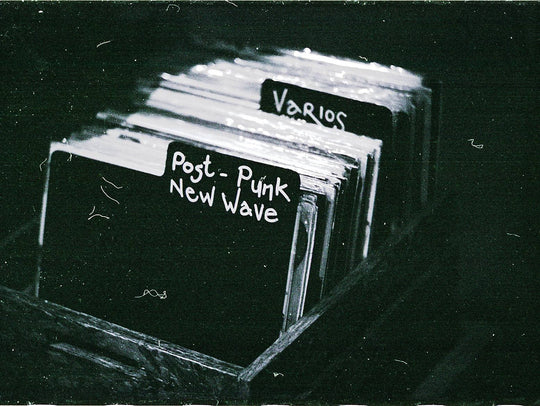 Varios
Post - Punk
New Wave